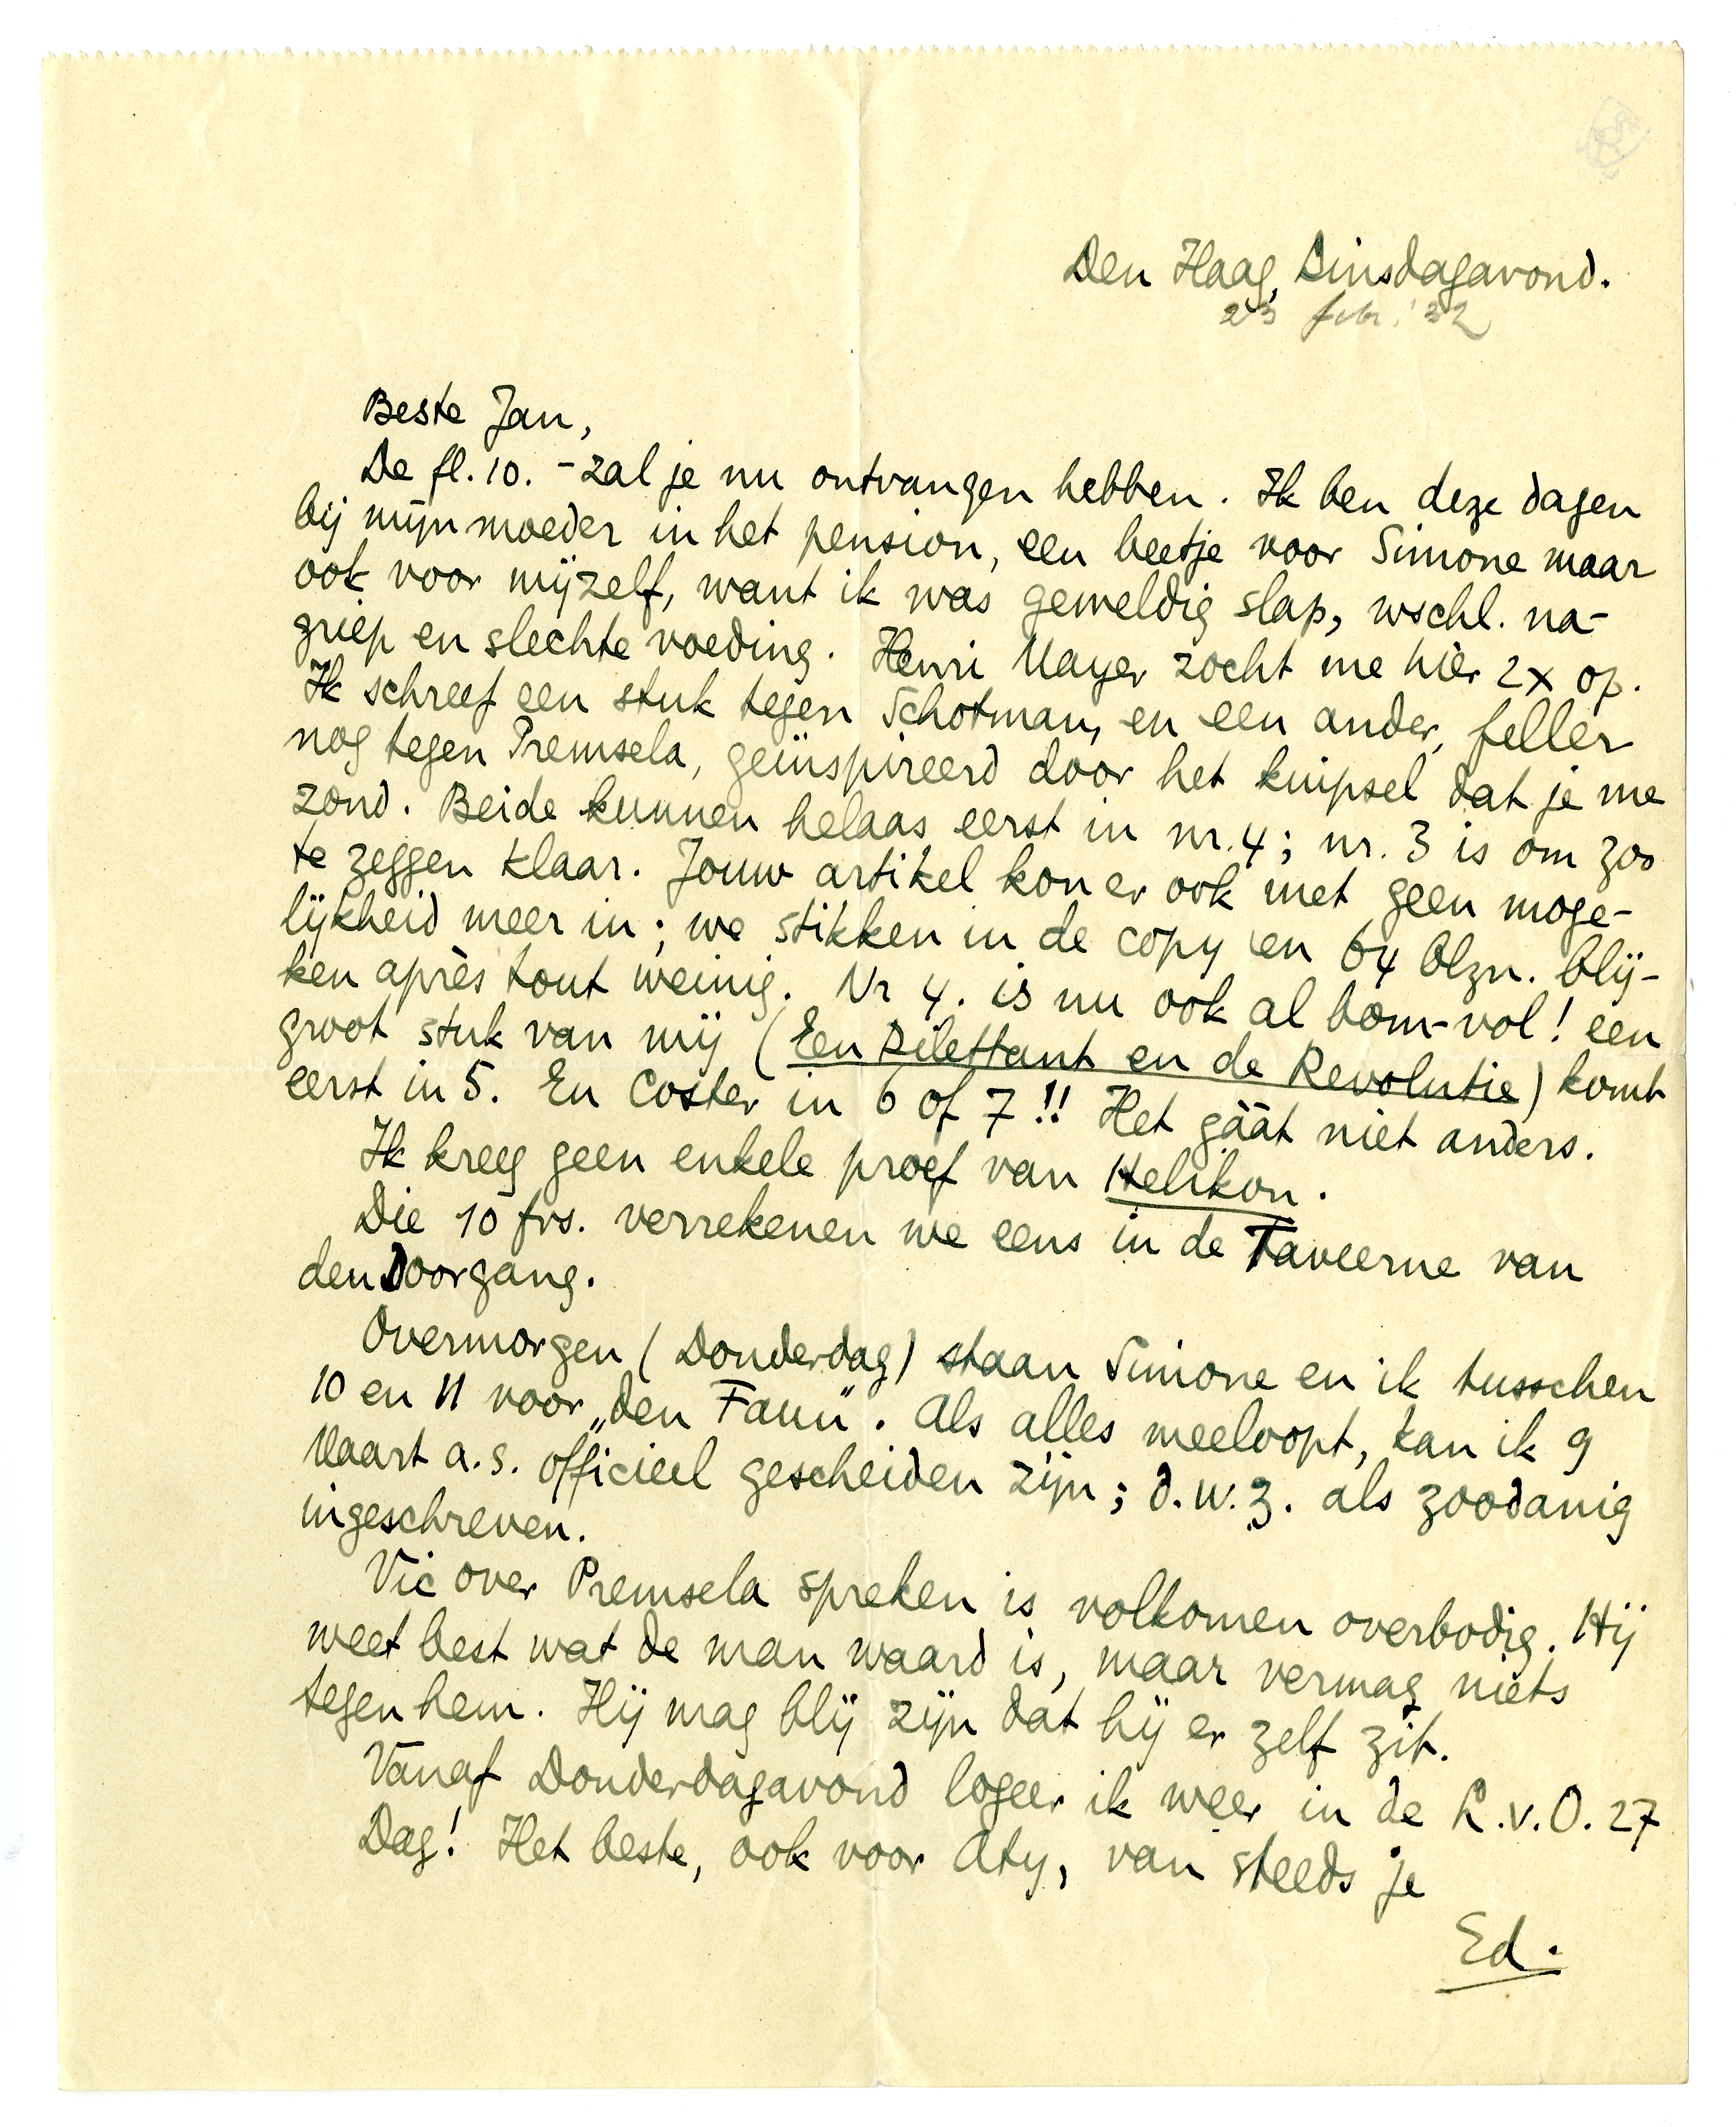 Den Haag, Dinsdagavond.
23 febr. '32
Beste Jan,
De fl. 10.- zal je nu ontvangen hebben. Ik ben deze dagen
bij mijn moeder in het pension, een beetje voor Simone maar
ook voor mijzelf, want ik was geweldig slap, wschl. na-
griep en slechte voeding. Henri Mayer zocht me hier 2x op.
Ik schreef een stuk tegen Schotman, en een ander, feller
nog tegen Premsela, geïnspireerd door het knipsel dat je me
zond. Beide kunnen helaas eerst in nr. 4; nr. 3 is om zoo
te zeggen klaar. Jouw artikel kon er ook met geen moge-
lijkheid meer in; we stikken in de copy en 64 blzn. blij-
ken après tout weinig. Nr 4. is nu ook al bom-vol! een
groot stuk van mij (Een Dilettant en de Revolutie) komt
eerst in 5. En Coster in 6 of 7!! Het gáát niet anders.
Ik kreeg geen enkele proef van Helikon.
Die 10 frs. verrekenen we eens in de Taveerne van
den Doorgang.
Overmorgen (Donderdag) staan Simone en ik tusschen
10 en 11 voor „den Faun”. Als alles meeloopt, kan ik 9
Maart a.s. officieel gescheiden zijn; d.w.z. als zoodanig
ingeschreven.
Vic over Premsela spreken is volkomen overbodig. Hij
weet best wat de man waard is, maar vermag niets
tegen hem. Hij mag blij zijn dat hij er zelf zit.
Vanaf Donderdagavond logeer ik weer in de L.v.O. 27
Dag! Het beste, ook voor Aty, van steeds je
Ed.